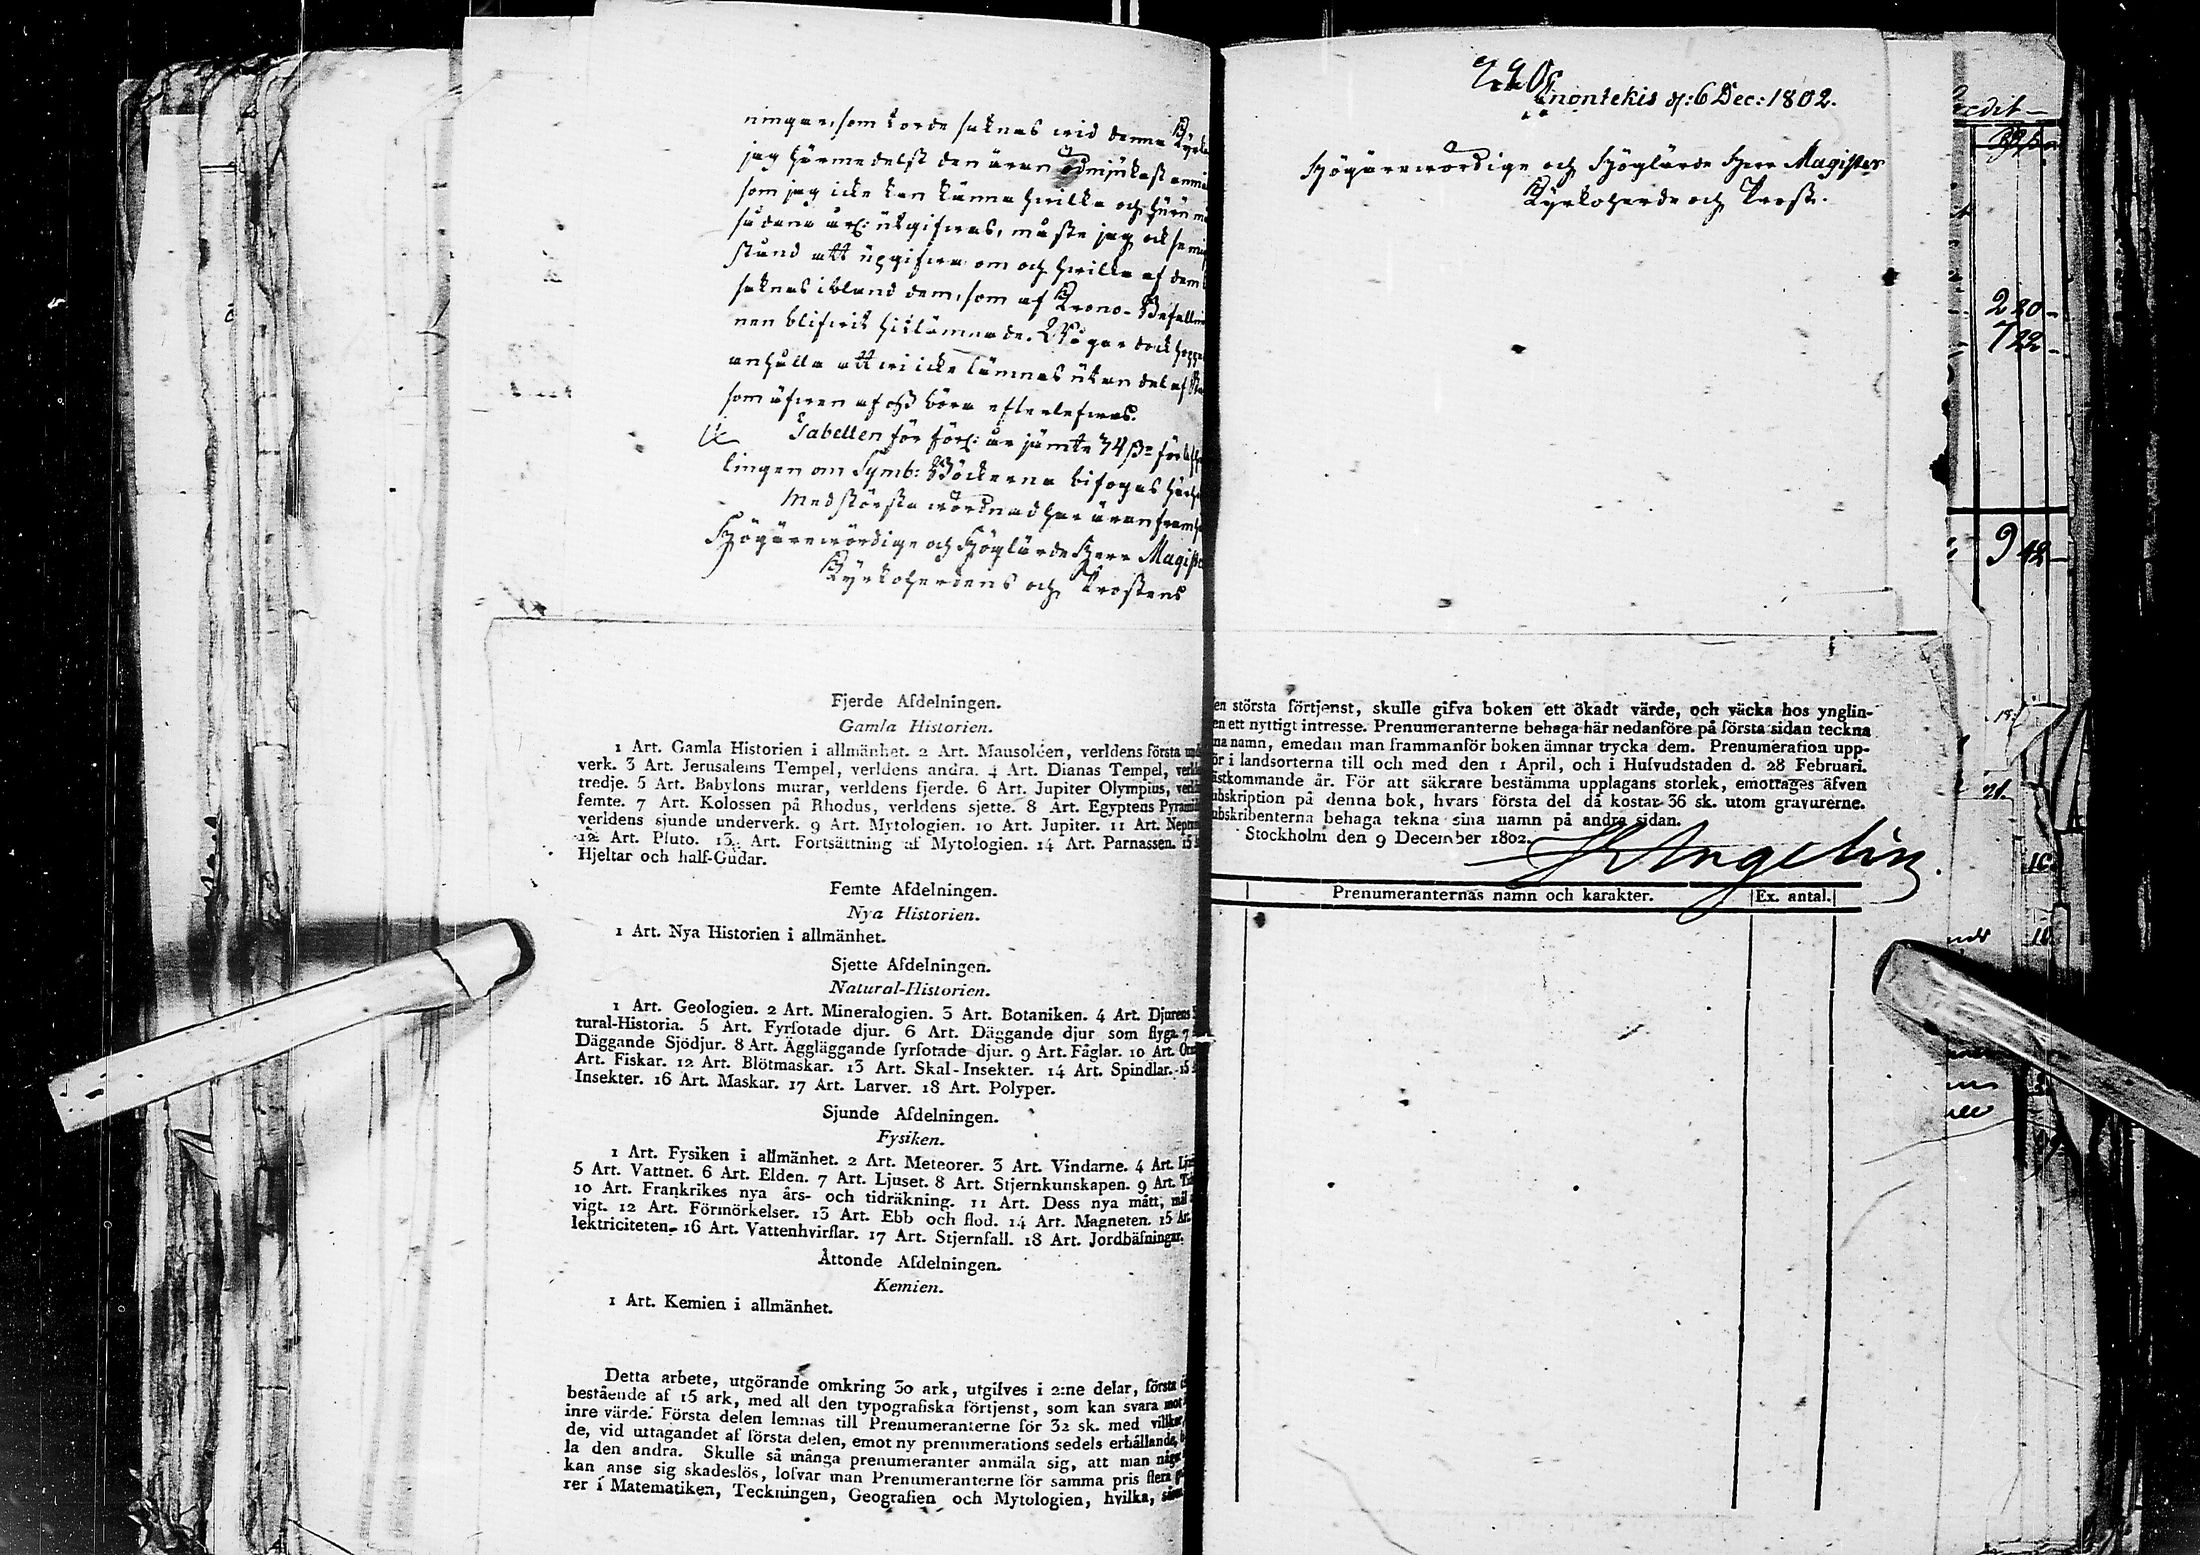 ningar, som torde saknas wid denna Kyrko
jag härmedelst den äran ödmjukast anmä
som jag icke kan känna hwilka och huru må
sådane ärl: utgifwas, måste jag ock
stånd att uppgifwa om och hwilka af dem
saknas ibland dem, som af Krono-Befallni
nen blifwit hitlämnade. Wågar dock
anhålla att wi icke lämnas utan del af
som äfwen af oss böra efterlefwas.
Tabellen för förl: år jämte 34 förk
lingen om Symb: Böckerna bifogas
Med största wördnad har äran framh
Högärewördige och Höglärde Herr Magist
Kyrkoherdens och Prostens
Fjerde Afdelningen.
Gamla Historien.
1 Art. Gamla Historien i allmänhet. 2 Art. Mausoléen, verldens första und
verk. 3 Art. Jerusalems Tempel, verldens andra. 4 Art. Dianas Tempel, verld
tredje. 5 Art. Babylons murar, verldens fjerde. 6 Art. Jupiter Olympius, verld
femte. 7 Art. Kolossen på Rhodus, verldens sjette. 8 Art. Egyptens Pyrami
verldens sjunde underverk. 9 Art. Mytologien. 10 Art. Jupiter. 11 Art. Neptu
12 Art. Pluto. 13. Art. Fortsättning af Mytologien. 14 Art. Parnassen. 15
Hjeltar och half-Gudar.
Femte Afdelningen.
Nya Historien.
1 Art. Nya Historien i allmänhet.
Sjette Afdelningen.
Natural-Historien.
1 Art. Geologien. 2 Art. Mineralogien. 3 Art. Botaniken. 4 Art. Djurens
tural-Historia. 5 Art. Fyrfotade djur. 6 Art. Däggande djur som flyga. 7
Däggande Sjödjur. 8 Art. Äggläggande fyrfotade djur. 9 Art. Fåglar. 10 Art. Or
Art. Fiskar. 12 Art. Blötmaskar. 13 Art. Skal-Insekter. 14 Art. Spindlar. 15
Insekter. 16 Art. Maskar. 17 Art. Larver. 18 Art. Polyper.
Sjunde Afdelningen.
Fysiken.
1 Art. Fysiken i allmänhet. 2 Art. Meteorer. 3 Art. Vindarne. 4 Art. Lju
5 Art. Vattnet. 6 Art. Elden. 7 Art. Ljuset. 8 Art. Stjernkunskapen. 9 Art.
10 Art. Frankrikes nya års- och tidräkning. 11 Art. Dess nya mått, mål
vigt. 12 Art. Förmörkelser. 13 Art. Ebb och flod. 14 Art. Magneten. 15 Art.
lektriciteten. 16 Art. Vattenhvirflar. 17 Art. Stjernfall. 18 Art. Jordbäfningar.
Åttonde Afdelningen.
Kemien.
1 Art. Kemien i allmänhet.
Detta arbete, utgörande omkring 30 ark, utgifves i 2:ne delar, första
bestående af 15 ark, med all den typografiska förtjenst, som kan svara mot
inre värde. Första delen lemnas till Prenumeranterne för 32 sk. med villkor,
de, vid uttagandet af första delen, emot ny prenumerations sedels erhållande,
la den andra. Skulle så många prenumeranter anmäla sig, att man någor
kan anse sig skadeslös, lofvar man Prenumeranterne för samma pris flera
rer i Matematiken, Teckningen, Geografien och Mytologien, hvilka,
Enontekis d: 6 Dec: 1802.
Högärewördige och Höglärde Herr Magister
Kyrkoherde och Prost.
en största förtjenst, skulle gifva boken ett ökadt värde, och väcka hos ynglin-
en ett nyttigt intresse. Prenumeranterne behaga här nedanföre på första sidan teckna
na namn, emedan man frammanför boken ämnar trycka dem. Prenumeration upp-
ör i landsorterna till och med den 1 April, och i Hufvudstaden d. 28 Februari.
ästkommande år. För att säkrare bestämma upplagans storlek, emottages äfven
ubskription på denna bok, hvars första del då kostar 36 sk. utom gravurerne.
ubskribenterna behaga tekna sina namn på andra sidan.
Stockholm den 9 December 1802.
Angelin
Prenumeranternas namn och karakter. Ex. antal.
edit
220
722
942